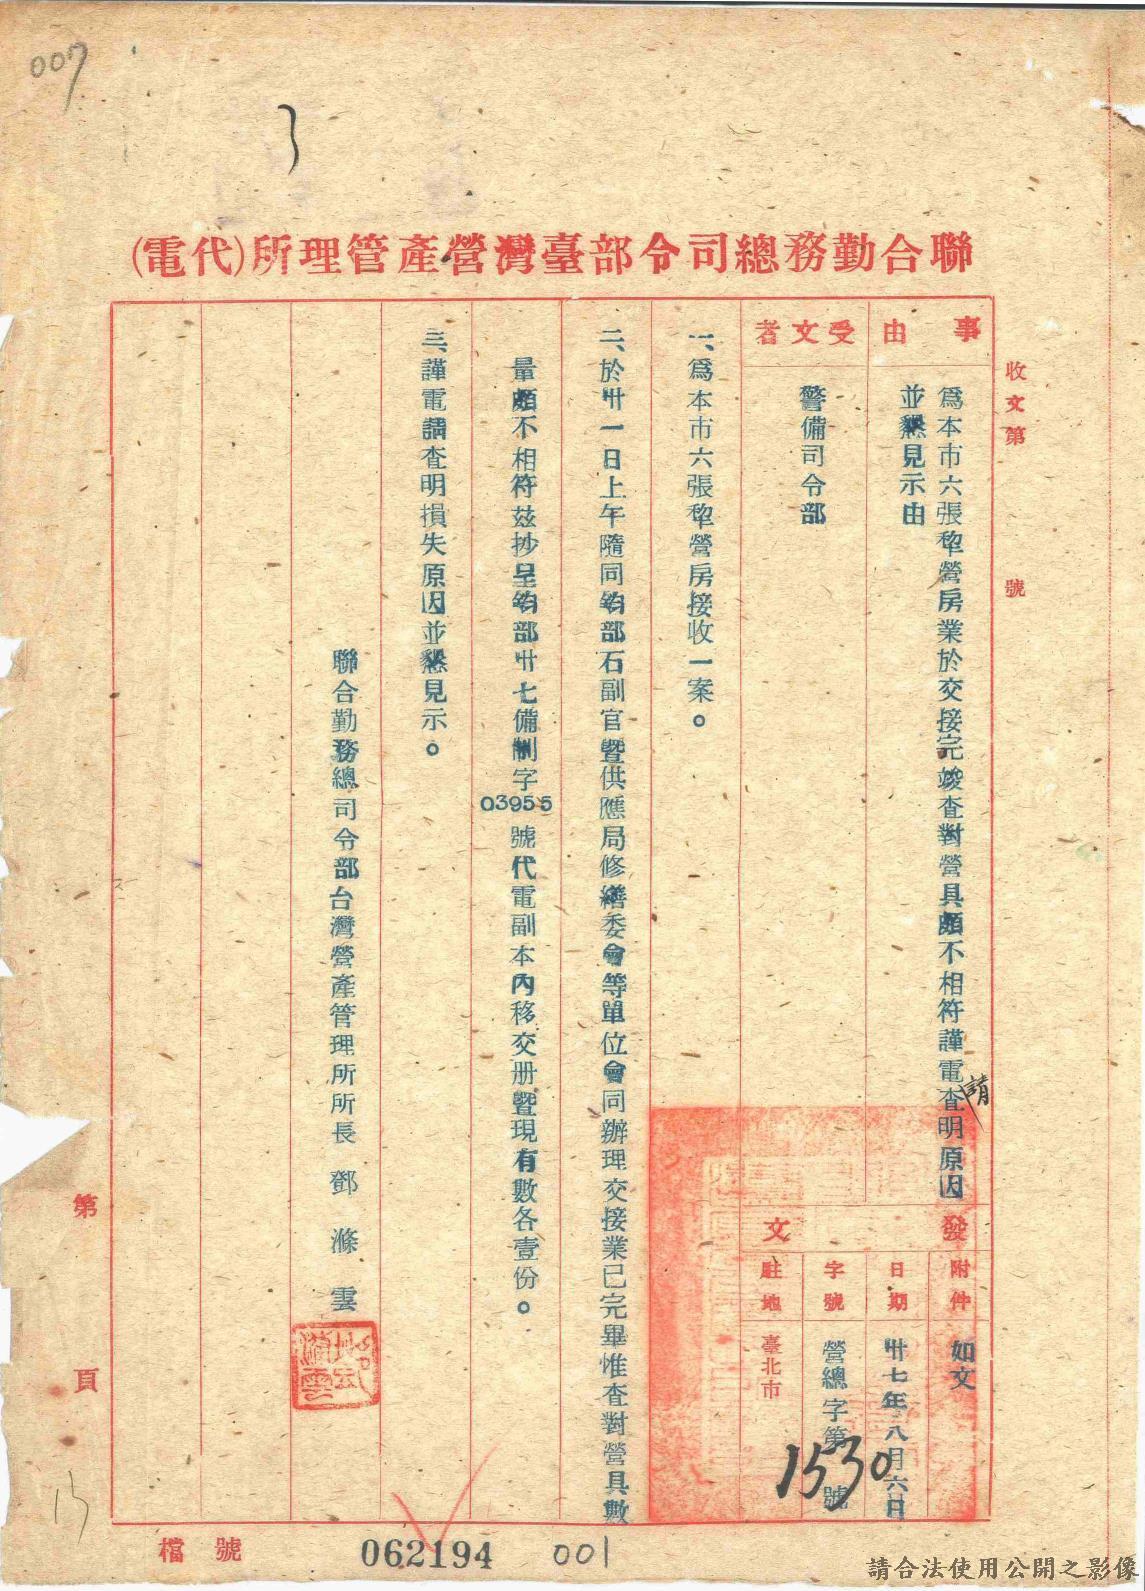 007
3
聯合勤務總司令部臺灣營產管理所(代電)
收文第　號
事由
為本市六張犂營房業於交接完竣查對營具頗不相符謹電請查明原因
並懇見示由
受文者
警備司令部
發文
附件
如文
日期
卅七年八月六日
字號
營總字第1530號
駐地
臺北市
一、為本市六張犂營房接收一案。
二、於卅一日上午隨同鈞部石副官暨供應局修繕委會等單位會同辦理交接業已完畢惟查對營具數
量頗不相符茲抄呈鈞部卅七備制字03955號代電副本內移交册暨現有數各壹份。
三、謹電請查明損失原因並懇見示。
聯合勤務總司令部台灣營產管理所所長　鄧　滌　雲
第　頁
檔號
062194
001
請合法使用公開之影像